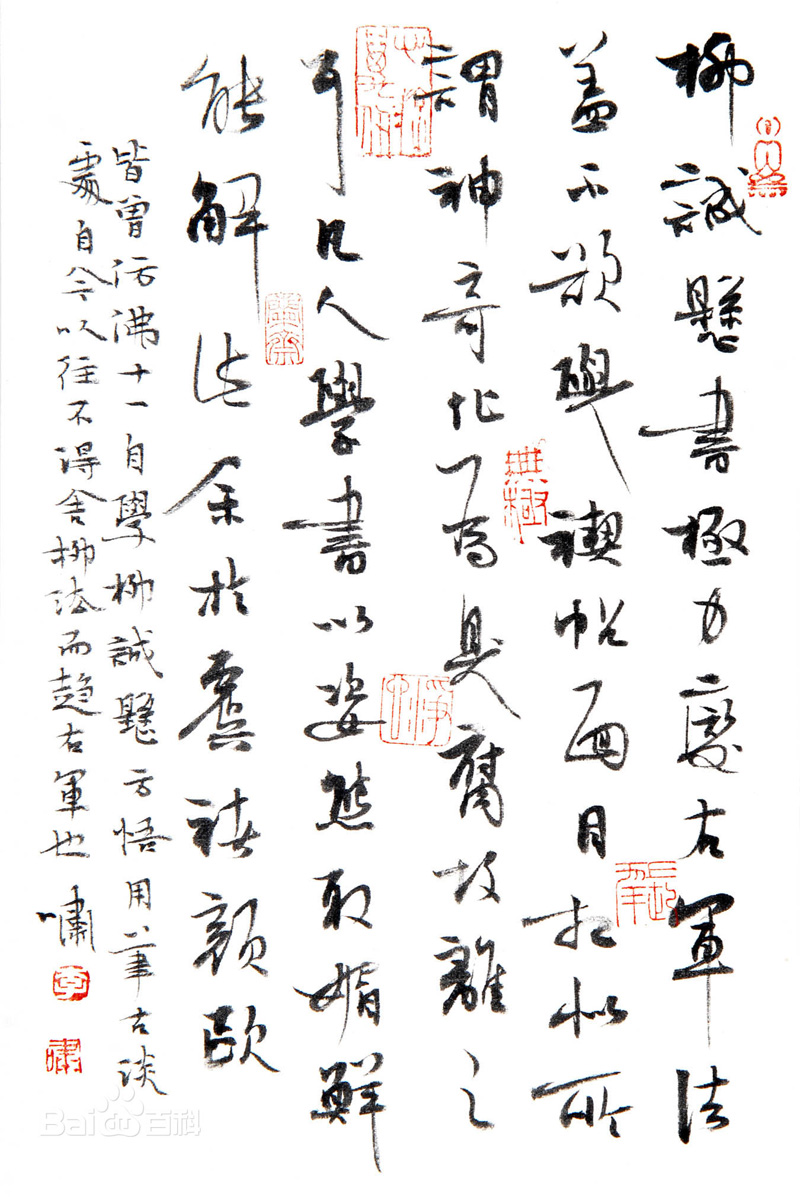 柳誠懸書極力變右軍法
盖不欲與禊帖面目相似所
謂神奇化為臭腐故離之
耳凡人學書以姿態取媚鮮
能解此余於虞褚顏歐
皆曾彷彿十一自學柳誠懸方悟用筆古淡
處自今以往不得舍柳法而趨右軍也 嘯
無極
嘯
Bai百科